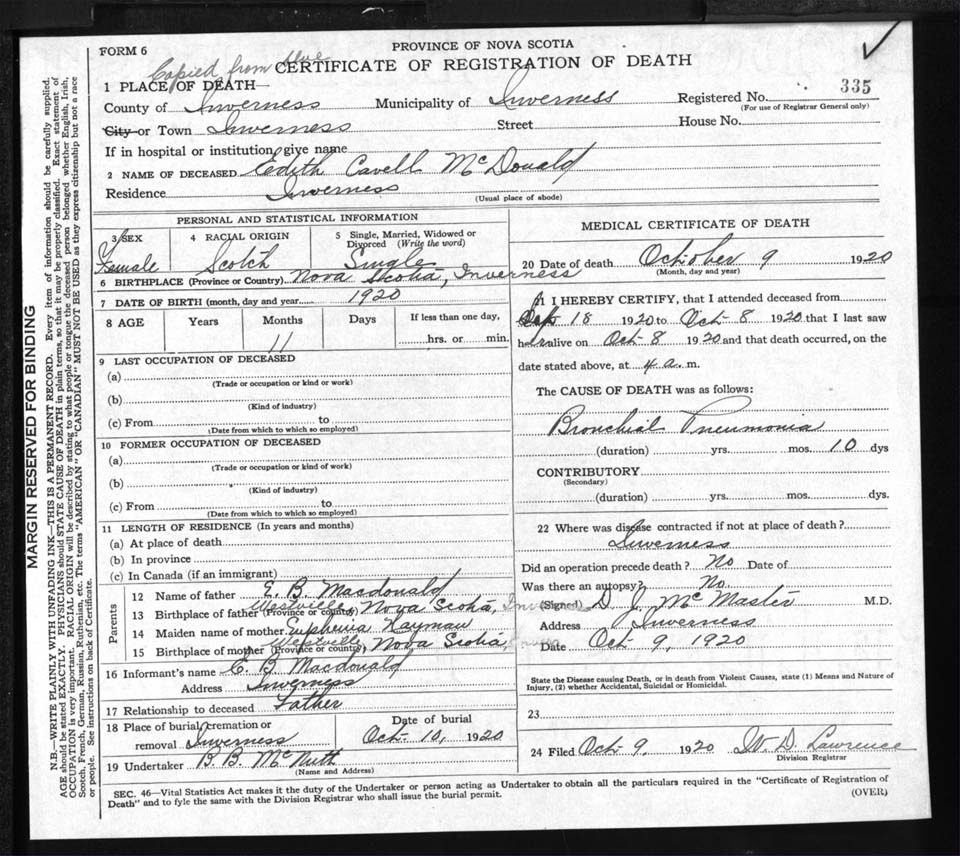 FORM 6
PROVINCE OF NOVA SCOTIA
Copied from blue
CERTIFICATE OF REGISTRATION OF DEATH
1 PLACE OF DEATH—
County of Inverness Municipality of Inverness Registered No. 335
(For use of Registrar General only)
City or Town Inverness Street House No.
If in hospital or institution, give name
2 NAME OF DECEASED Edith Cavell McDonald
Residence Inverness
(Usual place of abode)
PERSONAL AND STATISTICAL INFORMATION
3 SEX 4 RACIAL ORIGIN 5 Single, Married, Widowed or Divorced (Write the word)
Female Scotch Single
6 BIRTHPLACE (Province or Country) Nova Scotia, Inverness
7 DATE OF BIRTH (month, day and year) 1920
8 AGE Years Months Days If less than one day,
11 hrs. or min.
9 LAST OCCUPATION OF DECEASED
(a)
(Trade or occupation or kind of work)
(b)
(Kind of industry)
(c) From to
(Date from which to which so employed)
10 FORMER OCCUPATION OF DECEASED
(a)
(Trade or occupation or kind of work)
(b)
(Kind of industry)
(c) From to
(Date from which to which so employed)
11 LENGTH OF RESIDENCE (In years and months)
(a) At place of death
(b) In province
(c) In Canada (if an immigrant)
Parents
12 Name of father E. B. Macdonald
13 Birthplace of father (Province or country) Westville, Nova Scotia,
14 Maiden name of mother Euphemia Hayman
15 Birthplace of mother (Province or country) Westville, Nova Scotia,
16 Informant's name E. B. Macdonald
Address Inverness
17 Relationship to deceased Father
18 Place of burial, cremation or removal Inverness Date of burial Oct 10, 1920
19 Undertaker B. B. McNuth
(Name and Address)
MEDICAL CERTIFICATE OF DEATH
20 Date of death October 9 1920
(Month, day and year)
21 I HEREBY CERTIFY, that I attended deceased from
18 1920 to Oct 8 1920 that I last saw
her alive on Oct 8 1920 and that death occurred, on the
date stated above, at 4 a. m.
The CAUSE OF DEATH was as follows:
Bronchial Pneumonia
(duration) yrs. mos. 10 dys
CONTRIBUTORY
(Secondary)
(duration) yrs. mos. dys.
22 Where was disease contracted if not at place of death?
Inverness
Did an operation precede death? No Date of
Was there an autopsy? No
(Signed) D. J. McMaster M.D.
Address Inverness
Date Oct 9, 1920
State the Disease causing Death, or in death from Violent Causes, state (1) Means and Nature of
Injury, (2) whether Accidental, Suicidal or Homicidal.
23
24 Filed Oct 9, 1920 D. Lawrence
Division Registrar
SEC. 46—Vital Statistics Act makes it the duty of the Undertaker or person acting as Undertaker to obtain all the particulars required in the "Certificate of Registration of
Death" and to fyle the same with the Division Registrar who shall issue the burial permit.
(OVER)
MARGIN RESERVED FOR BINDING
N.B.—WRITE PLAINLY WITH UNFADING INK—THIS IS A PERMANENT RECORD. Every item of information should be carefully supplied.
AGE should be stated EXACTLY. PHYSICIANS should STATE CAUSE OF DEATH in plain terms, so that it may be properly classified. Exact statement of
OCCUPATION is very important. RACIAL ORIGIN will be described by stating to what people or tongue the deceased person belonged whether English, Irish,
Scotch, French, German, Russian, Ruthenian, etc. The terms "AMERICAN" OR "CANADIAN" MUST NOT BE USED as they express citizenship but not a race
or people. See instructions on back of Certificate.